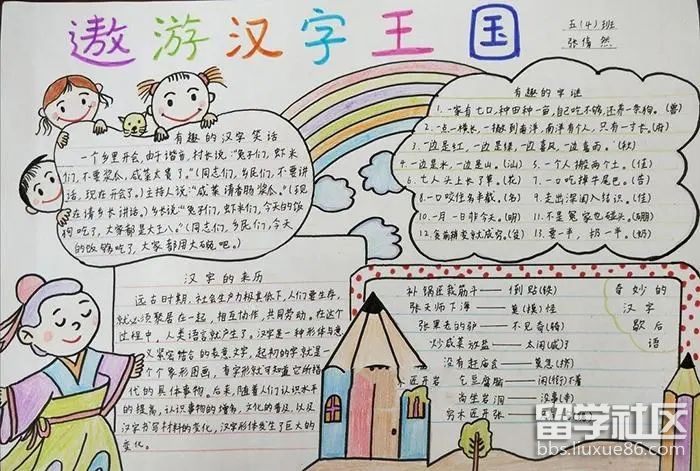 遨游汉字王国
五(4)班
张倩然
有趣的汉字笑话
一个乡里开会,由于谐音,村长说:“兔子们,虾米
们,不要浆瓜,咸菜太贵了。”(同志们,乡民们,不要讲
话,现在开会了。)主持人说:“咸菜请香肠浆瓜。”(现
在请乡长讲话。)乡长说:“兔子们,虾米们,今天的饭
狗吃了,大家都是大王八。”(同志们,乡民们,今天
的饭够吃了,大家都用大碗吧。)
有趣的字谜
1.一家有七口,种田种一亩,自己吃不够,还养一条狗。(兽)
2.一点一横长,一撇到南洋,南洋有个人,只有一寸长。(府)
3.一边是红,一边是绿,一边喜风,一边喜雨。(秋)
4.一边是水,一边是山。(汕)
5.一个人搬两个土。(佳)
6.七人头上长了草。(花)
7.一口吃掉牛尾巴。(告)
8.一口咬住多半截。(名)
9.走出深闺人结识。(佳)
10.一月一日非今天。(明)
11.不是冤家也碰头。(硼)
12.
13.要一半,扔一半。(奶)
汉字的来历
远古时期,社会生产力极其低下,人们要生存,
就必须聚居在一起,相互协作,共同劳动。在这个
过程中,人类语言就产生了。汉字是一种形体与意
义紧密结合的表意文字,起初的字就是一
个个象形图画,看字形就可知道它所指
代的具体事物。后来,随着人们认识水平
的提高,认识事物的增多,文化的普及,以及
汉字书写材料的变化,汉字形体发生了巨大的
变化。
奇妙的
汉字
歇后
语
补锅匠栽筋斗——倒贴(铁)
张天师下海——莫(摸)怪
张果老的驴——不见奇(骑)
炒咸菜放盐——太闲(咸)了
没有赶庙会——莫急(挤)
乞豆腐脑——闲(衔)不着
匠开岩
和尚坐岩洞——没事(寺)
穷木匠开张——
留学社区
bbs.liuxue86.com